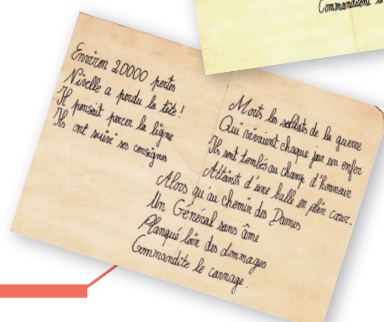 Commandaient
Environ 20000 pertes
Nivelle a perdu la tête!
Il pensait percer la ligne
Ils ont suivi ses consignes
Morts les soldats de la guerre
Qui vivaient chaque jour un enfer
Ils sont tombés au champ d'honneur
Atteints d'une balle en plein cœur.
Alors qu'au chemin des Dames
Un Général sans âme
Planqué loin des dommages
Commandite le carnage.